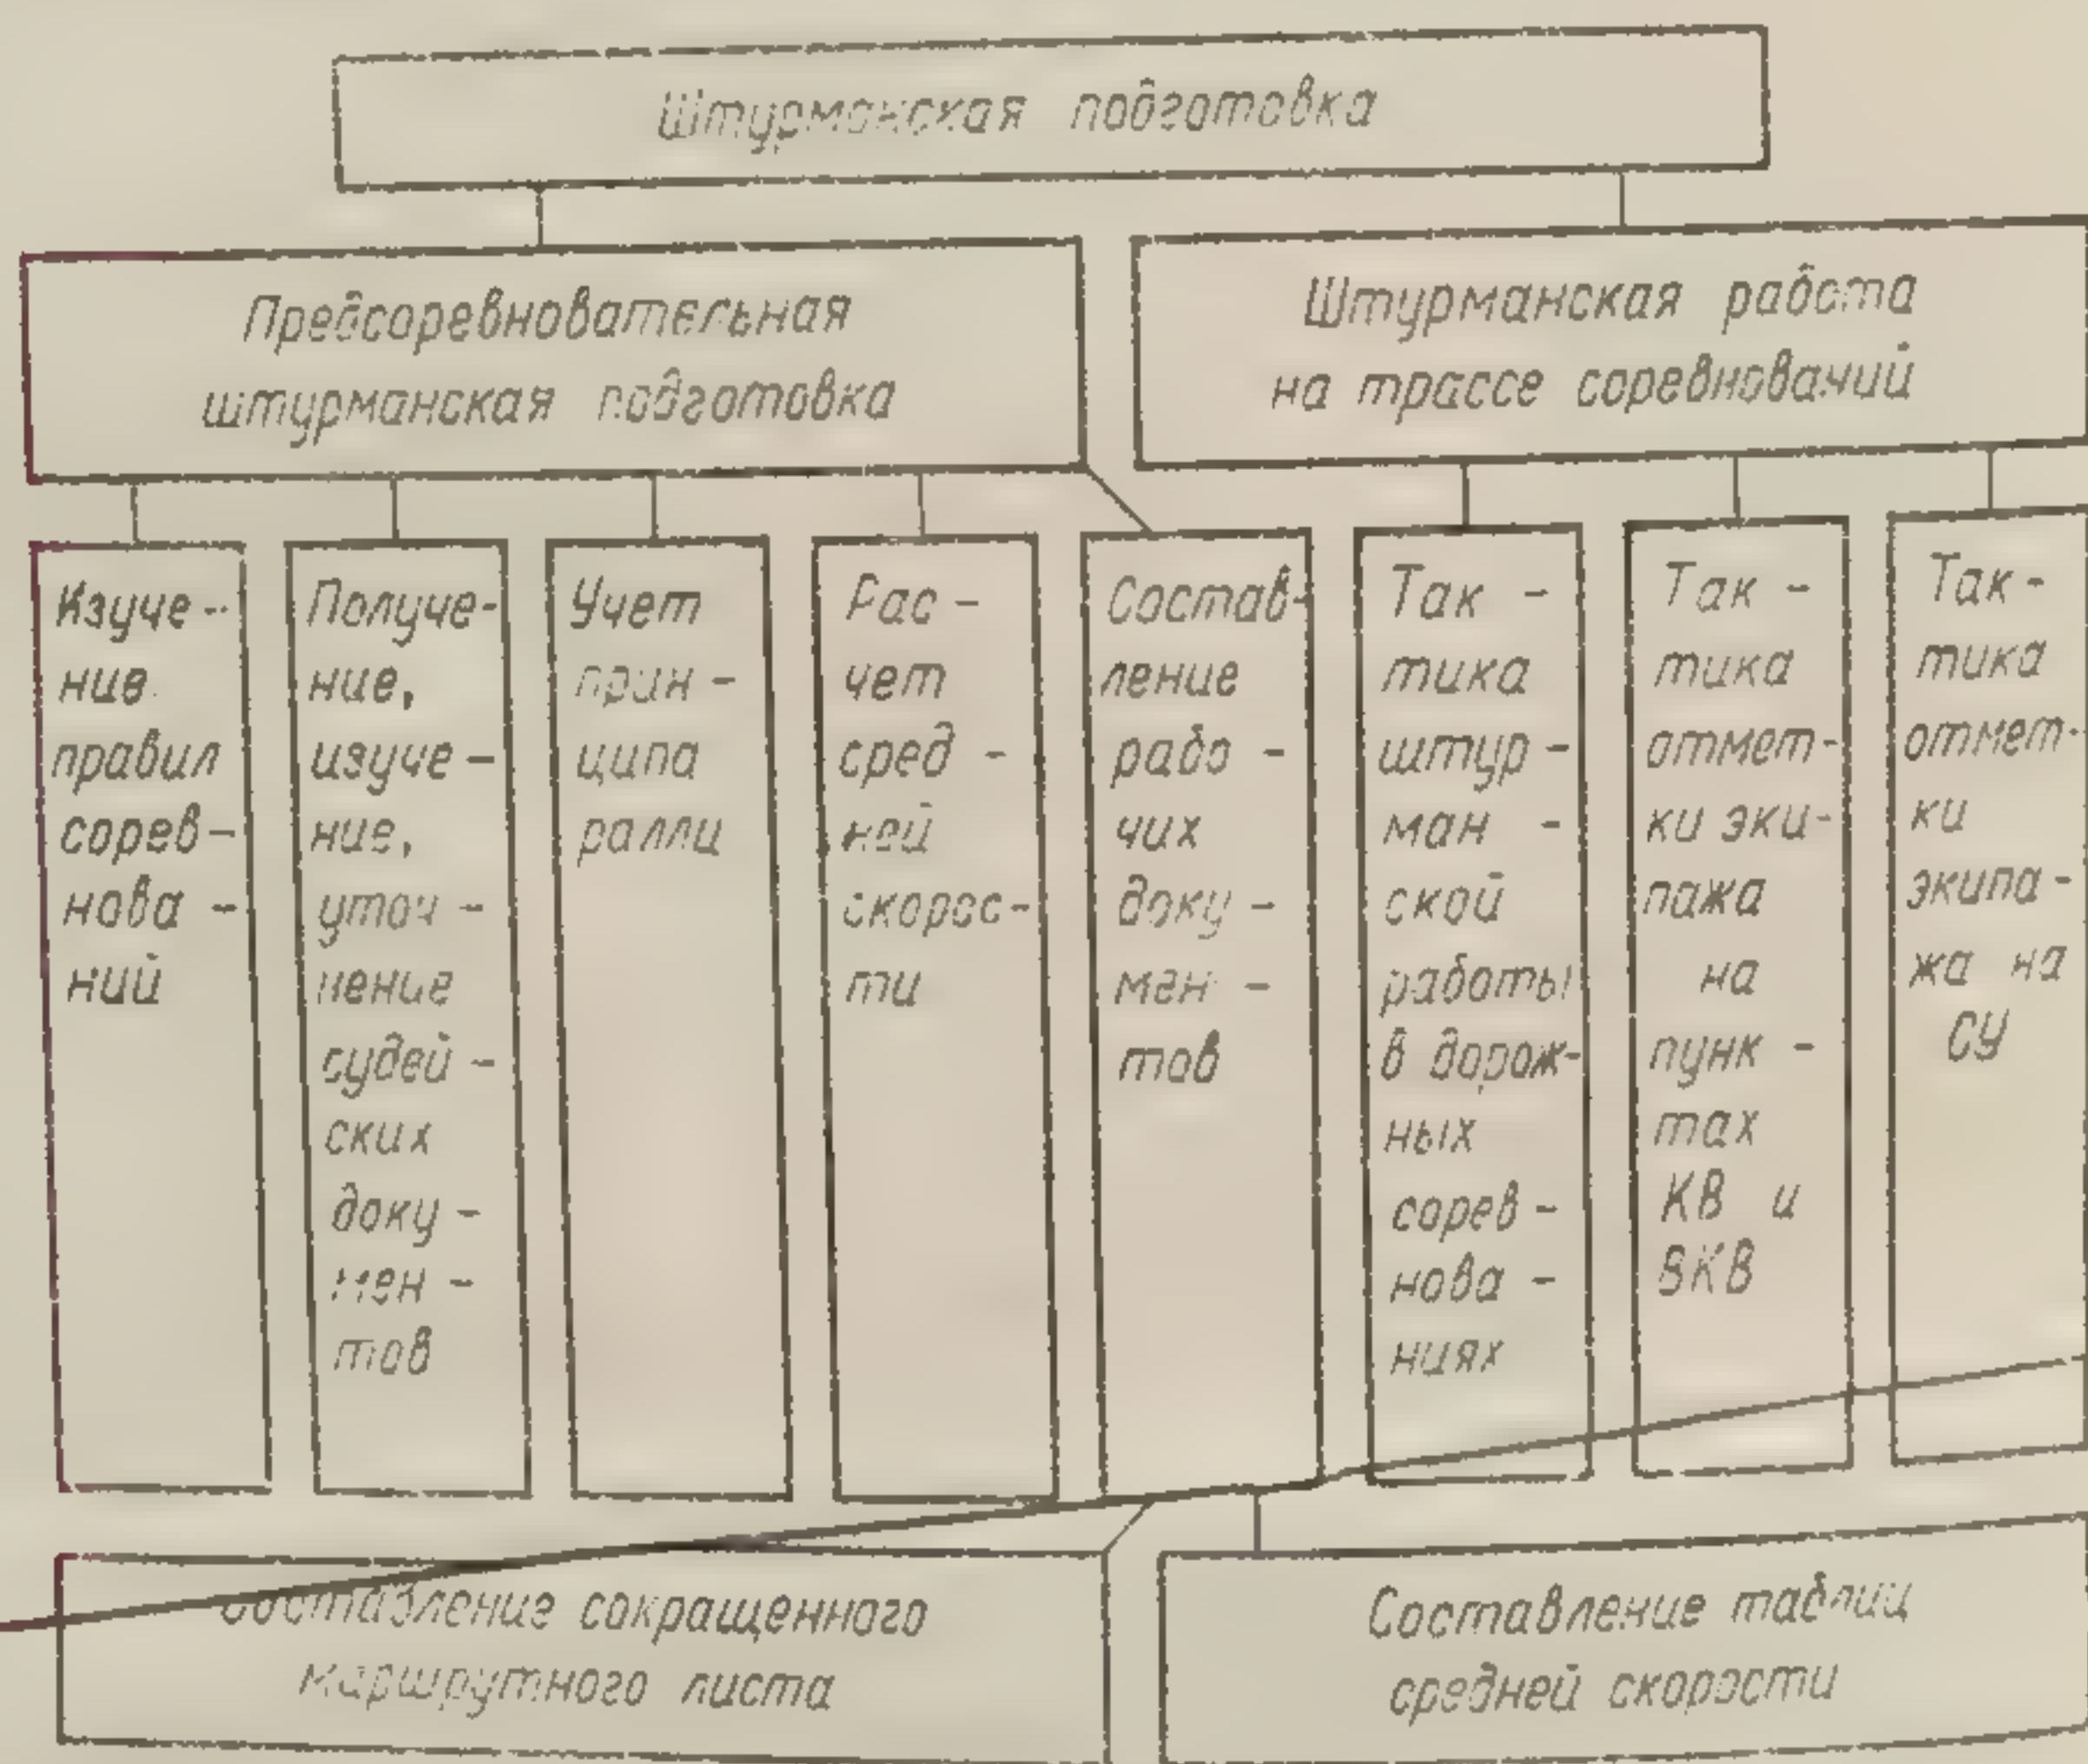 Штурманская подготовка
Предсоревновательная
штурманская подготовка
Штурманская работа
на трассе соревнований
Изуче-
ние
правил
сорев-
нова-
ний
Получе-
ние,
изуче-
ние,
уточ-
нение
судей-
ских
доку-
мен-
тов
Учет
прин-
ципа
ралли
Рас-
чет
сред-
ней
скорос-
ти
Состав-
ление
рабо-
чих
доку-
мен-
тов
Так-
тика
штур-
ман-
ской
работы
в дорож-
ных
сорев-
нова-
ниях
Так-
тика
отмет-
ки эки-
пажа
на
пунк-
тах
КВ и
ВКВ
Так-
тика
отмет-
ки
экипа-
жа на
СУ
Составление сокращенного
маршрутного листа
Составление таблиц
средней скорости